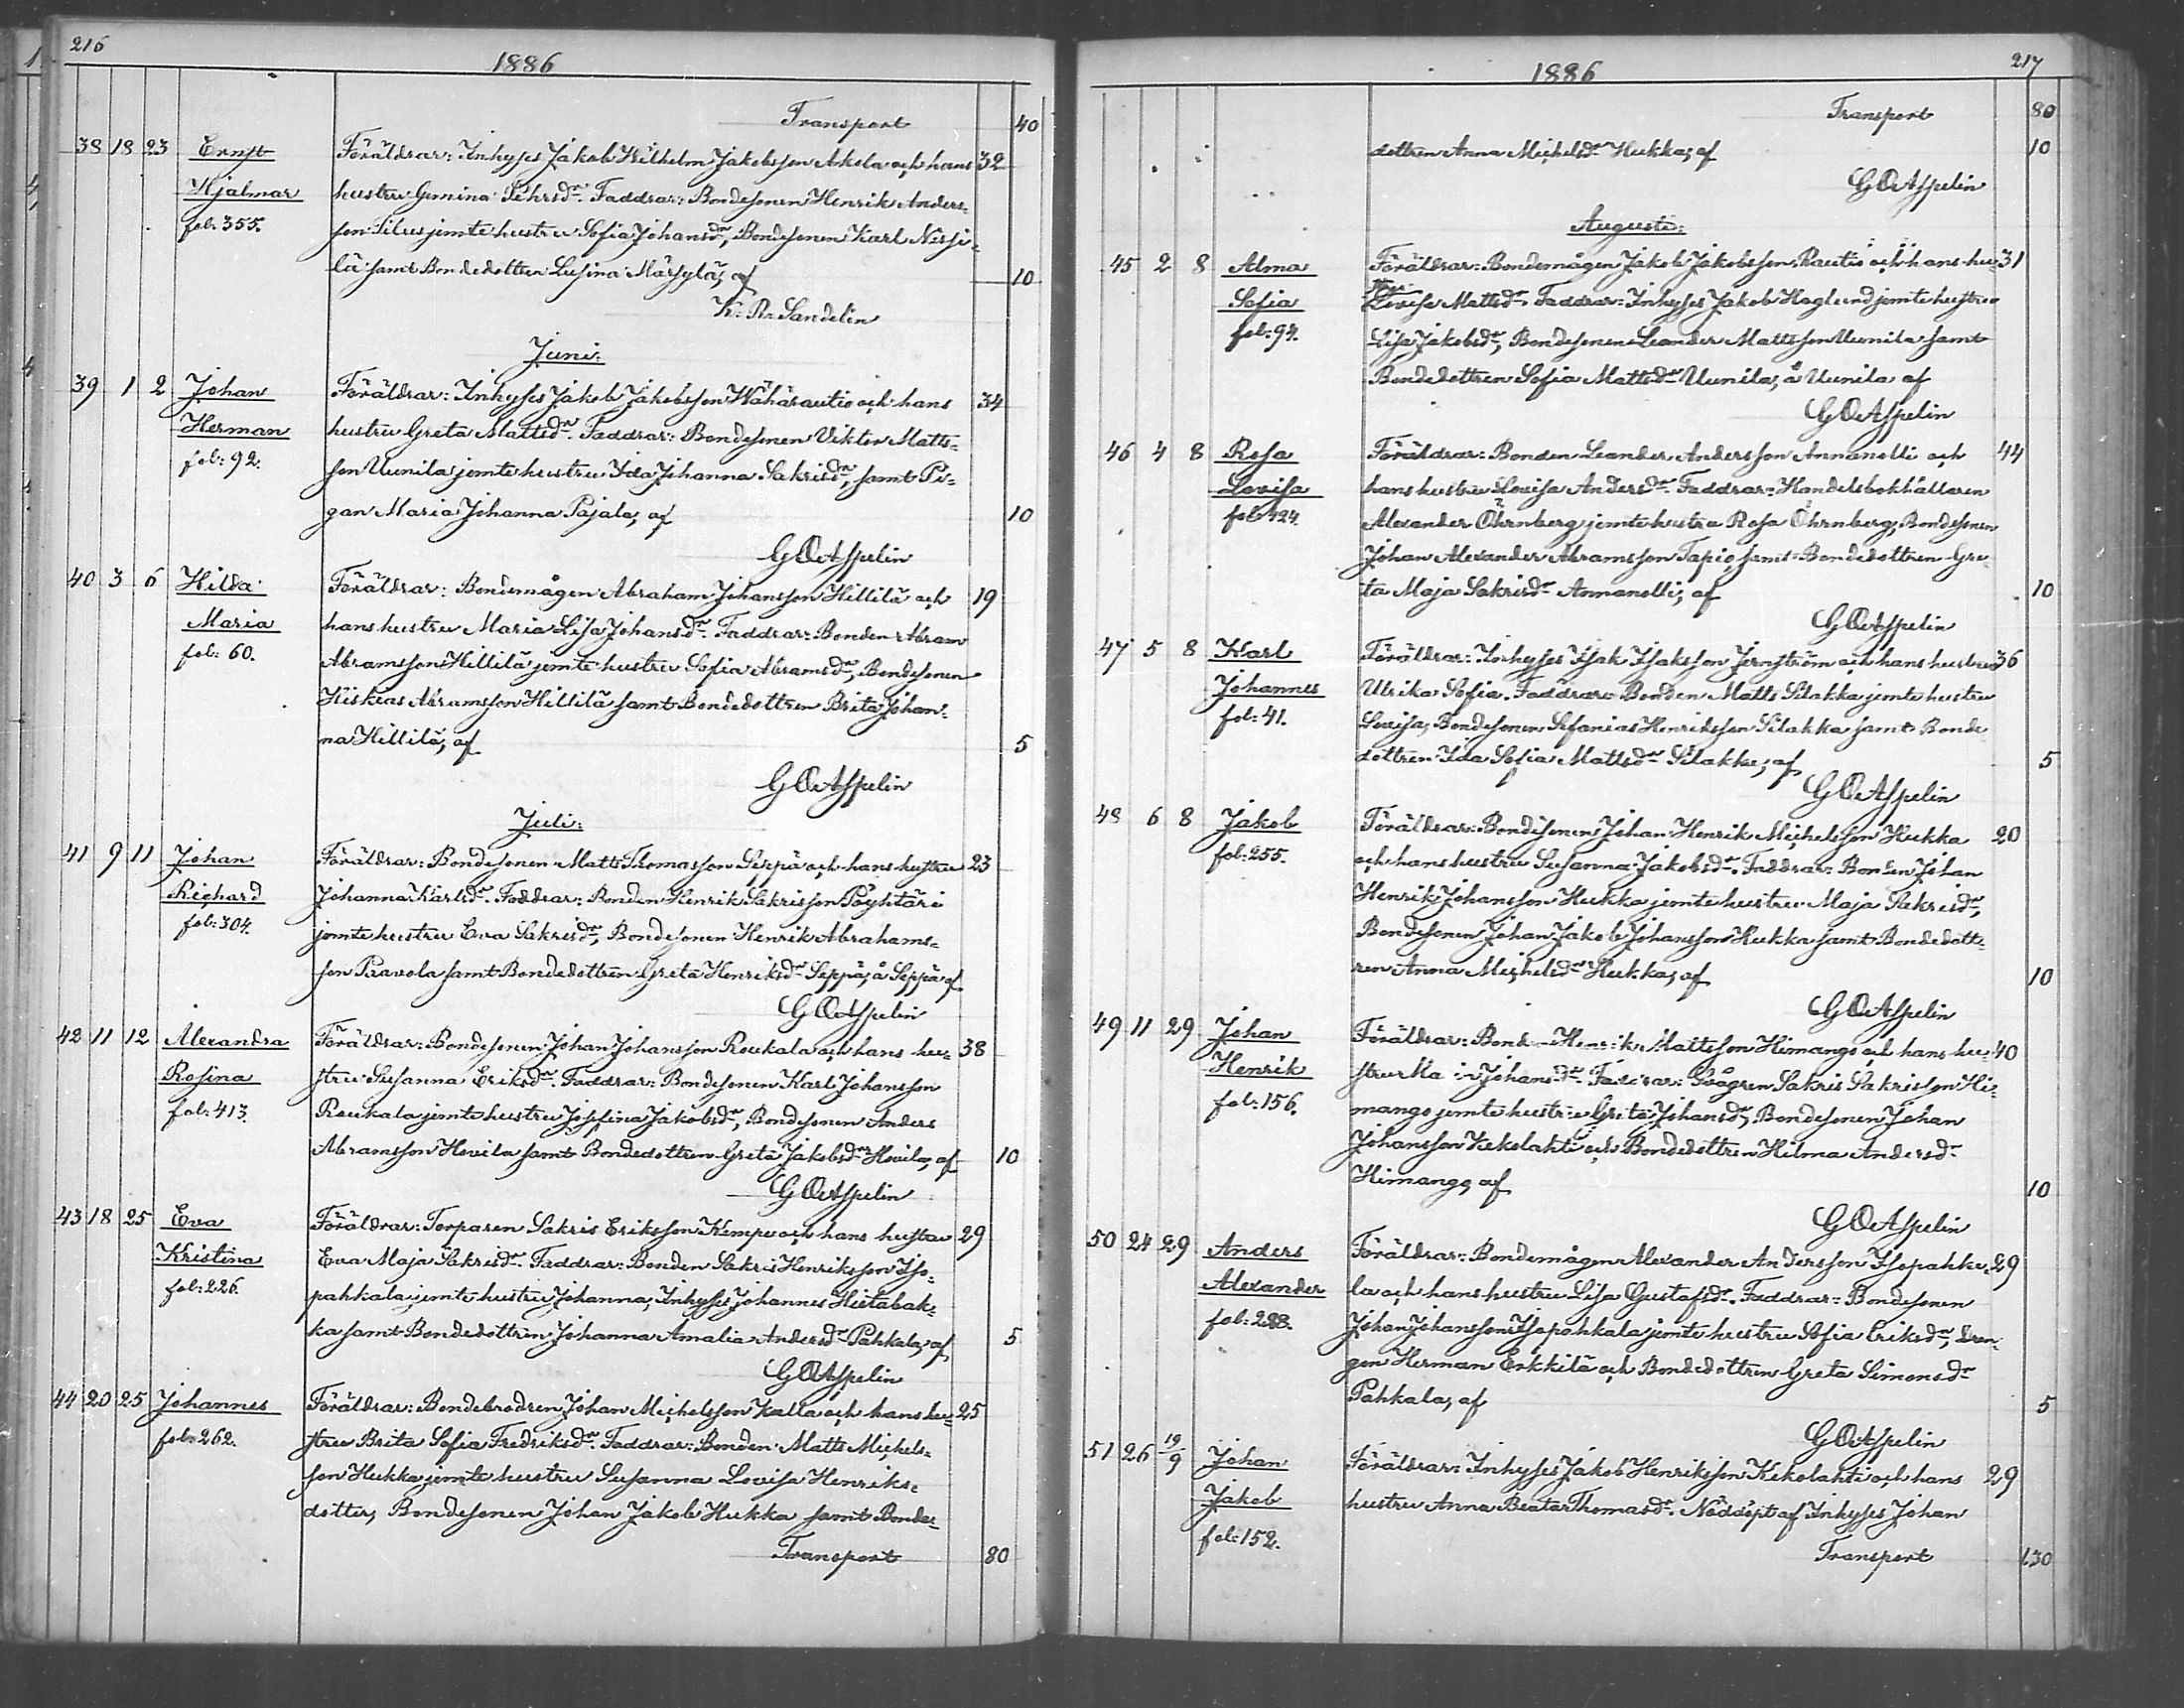 216
1886
Transport 40
38 18 23 Ernst Föräldrar: Inhyses Jakob Wilhelm Jakobsson Ahola och hans 32
Hjalmar hustru Gemina Pehrsdr. Faddrar: Bondesonen Henrik Anders-
fol. 355. son Silus jemte hustru Sofia Johansdr, Bondesonen Karl Nissi-
lä samt Bondedottren Lusina Märsylä, af 10
K. R. Sandelin
Juni:
39 1 2 Johan Föräldrar: Inhyses Jakob Jakobsson Wähärautio och hans 34
Herman hustru Greta Mattsdr. Faddrar: Bondesonen Viktor Matts-
fol: 92. son Uunila jemte hustru Ida Johanna Sakrisdr, samt Pi-
gan Maria Johanna Pajala, af 10
G O Aspelin
40 3 6 Hilda Föräldrar: Bondemågen Abraham Johansson Hillilä och 19
Maria hans hustru Maria Lisa Johansdr. Faddrar: Bonden Abram
fol: 60. Abramsson Hillilä jemte hustru Sofia Abramsdr, Bondesonen
Hiskias Abramsson Hillilä samt Bondedottren Brita Johan-
na Hillilä, af 5
G O Aspelin
Juli:
41 9 11 Johan Föräldrar: Bondesonen Matts Thomasson Seppä och hans hustru 23
Richard Johanna Karlsdr. Faddrar: Bonden Henrik Sakrisson Pöyhtäri
fol: 304. jemte hustru Eva Sakrisdr, Bondesonen Henrik Abrahams-
son Paavola samt Bondedottren Greta Henriksdr Seppä, å Seppä af
G O Aspelin
42 11 12 Alexandra Föräldrar: Bondesonen Johan Johansson Roukala och hans hu- 38
Rosina stru Susanna Eriksdr. Faddrar: Bondesonen Karl Johansson
fol: 413. Roukala jemte hustru Josefina Jakobsdr, Bondesonen Anders
Abramsson Hovila samt Bondedottren Greta Jakobsdr Hovila, af 10
G O Aspelin
43 18 25 Eva Föräldrar: Torparen Sakris Eriksson Kempe och hans hustru 29
Kristina Eva Maja Sakrisdr. Faddrar: Bonden Sakris Henriksson Iso-
fol: 226. pahkala jemte hustru Johanna, Inhyses Johannes Hietabak-
ka samt Bondedottren Johanna Amalia Andersdr Pahkala, af 5
G O Aspelin
44 20 25 Johannes Föräldrar: Bondebrodren Johan Michelsson Kalla och hans hu- 25
fol: 262. stru Brita Sofia Fredriksdr. Faddrar: Bonden Matts Michels-
son Hukka jemte hustru Susanna Lovisa Henriks-
dotter, Bondesonen Johan Jakob Hukka samt Bonde-
Transport 80
217
1886
Transport 80
dottren Anna Michelsdr Hukka, af 10
G O Aspelin
Augusti:
45 2 8 Alma Föräldrar: Bondemågen Jakob Jakobsson Rautio och hans hu- 31
stru
Sofia Lovisa Mattsdr. Faddrar: Inhyses Jakob Haglund jemte hustru
fol: 94. Lisa Jakobsdr, Bondesonen Leander Mattsson Uunila samt
Bondedottren Sofia Mattsdr Uunila, å Uunila af
G O Aspelin
46 4 8 Rosa Föräldrar: Bonden Leander Andersson Annanolli och 44
Lovisa hans hustru Lovisa Andersdr. Faddrar: Handelsbokhållaren
fol: 424. Alexander Öhrnberg jemte hustru Rosa Öhrnberg, Bondesonen
Johan Alexander Abramsson Tapio, samt Bondedottren Gre-
ta Maja Sakrisdr Annanolli, af 10
G O Aspelin
47 5 8 Karl Föräldrar: Inhyses Isak Isaksson Jernström och hans hustru 36
Johannes Ulrika Sofia. Faddrar: Bonden Matts Silakka jemte hustru
fol: 41. Lovisa, Bondesonen Sefanias Henriksson Silakka samt Bonde
dottren Ida Sofia Mattsdr Silakka, af 5
G O Aspelin
48 6 8 Jakob Föräldrar: Bondesonen Johan Henrik Michelsson Hukka 20
fol: 255. och hans hustru Susanna Jakobsdr. Faddrar: Bonden Johan
Henrik Johansson Hukka jemte hustru Maja Sakrisdr,
Bondesonen Johan Jakob Johansson Hukka samt Bondedott-
ren Anna Michelsdr Hukka, af 10
G O Aspelin
49 11 29 Johan Föräldrar: Bonden Henrik Mattsson Himango och hans hu- 40
Henrik stru Johansdr. Faddrar: Svågren Sakris Sakrisson Hi-
fol: 156. mango jemte hustru Greta Johansdr, Bondesonen Johan
Johansson Kekolahti och Bondedottren Hilma Andersdr
Himango, af 10
G O Aspelin
50 24 29 Anders Föräldrar: Bondemågen Alexander Andersson Isopahka- 29
Alexander la och hans hustru Lisa Gustafsdr. Faddrar: Bondesonen
fol: 288. Johan Johansson Isopahkala jemte hustru Sofia Eriksdr, Dren-
gen Herman Erkkilä och Bondedottren Greta Simonsdr
Pahkala, af 5
G O Aspelin
51 26 19/9 Johan Föräldrar: Inhyses Jakob Henriksson Kekolahti och hans 29
Jakob hustru Anna Beata Thomasdr. Nöddöpt af Inhyses Johan
fol: 152.
Transport 130